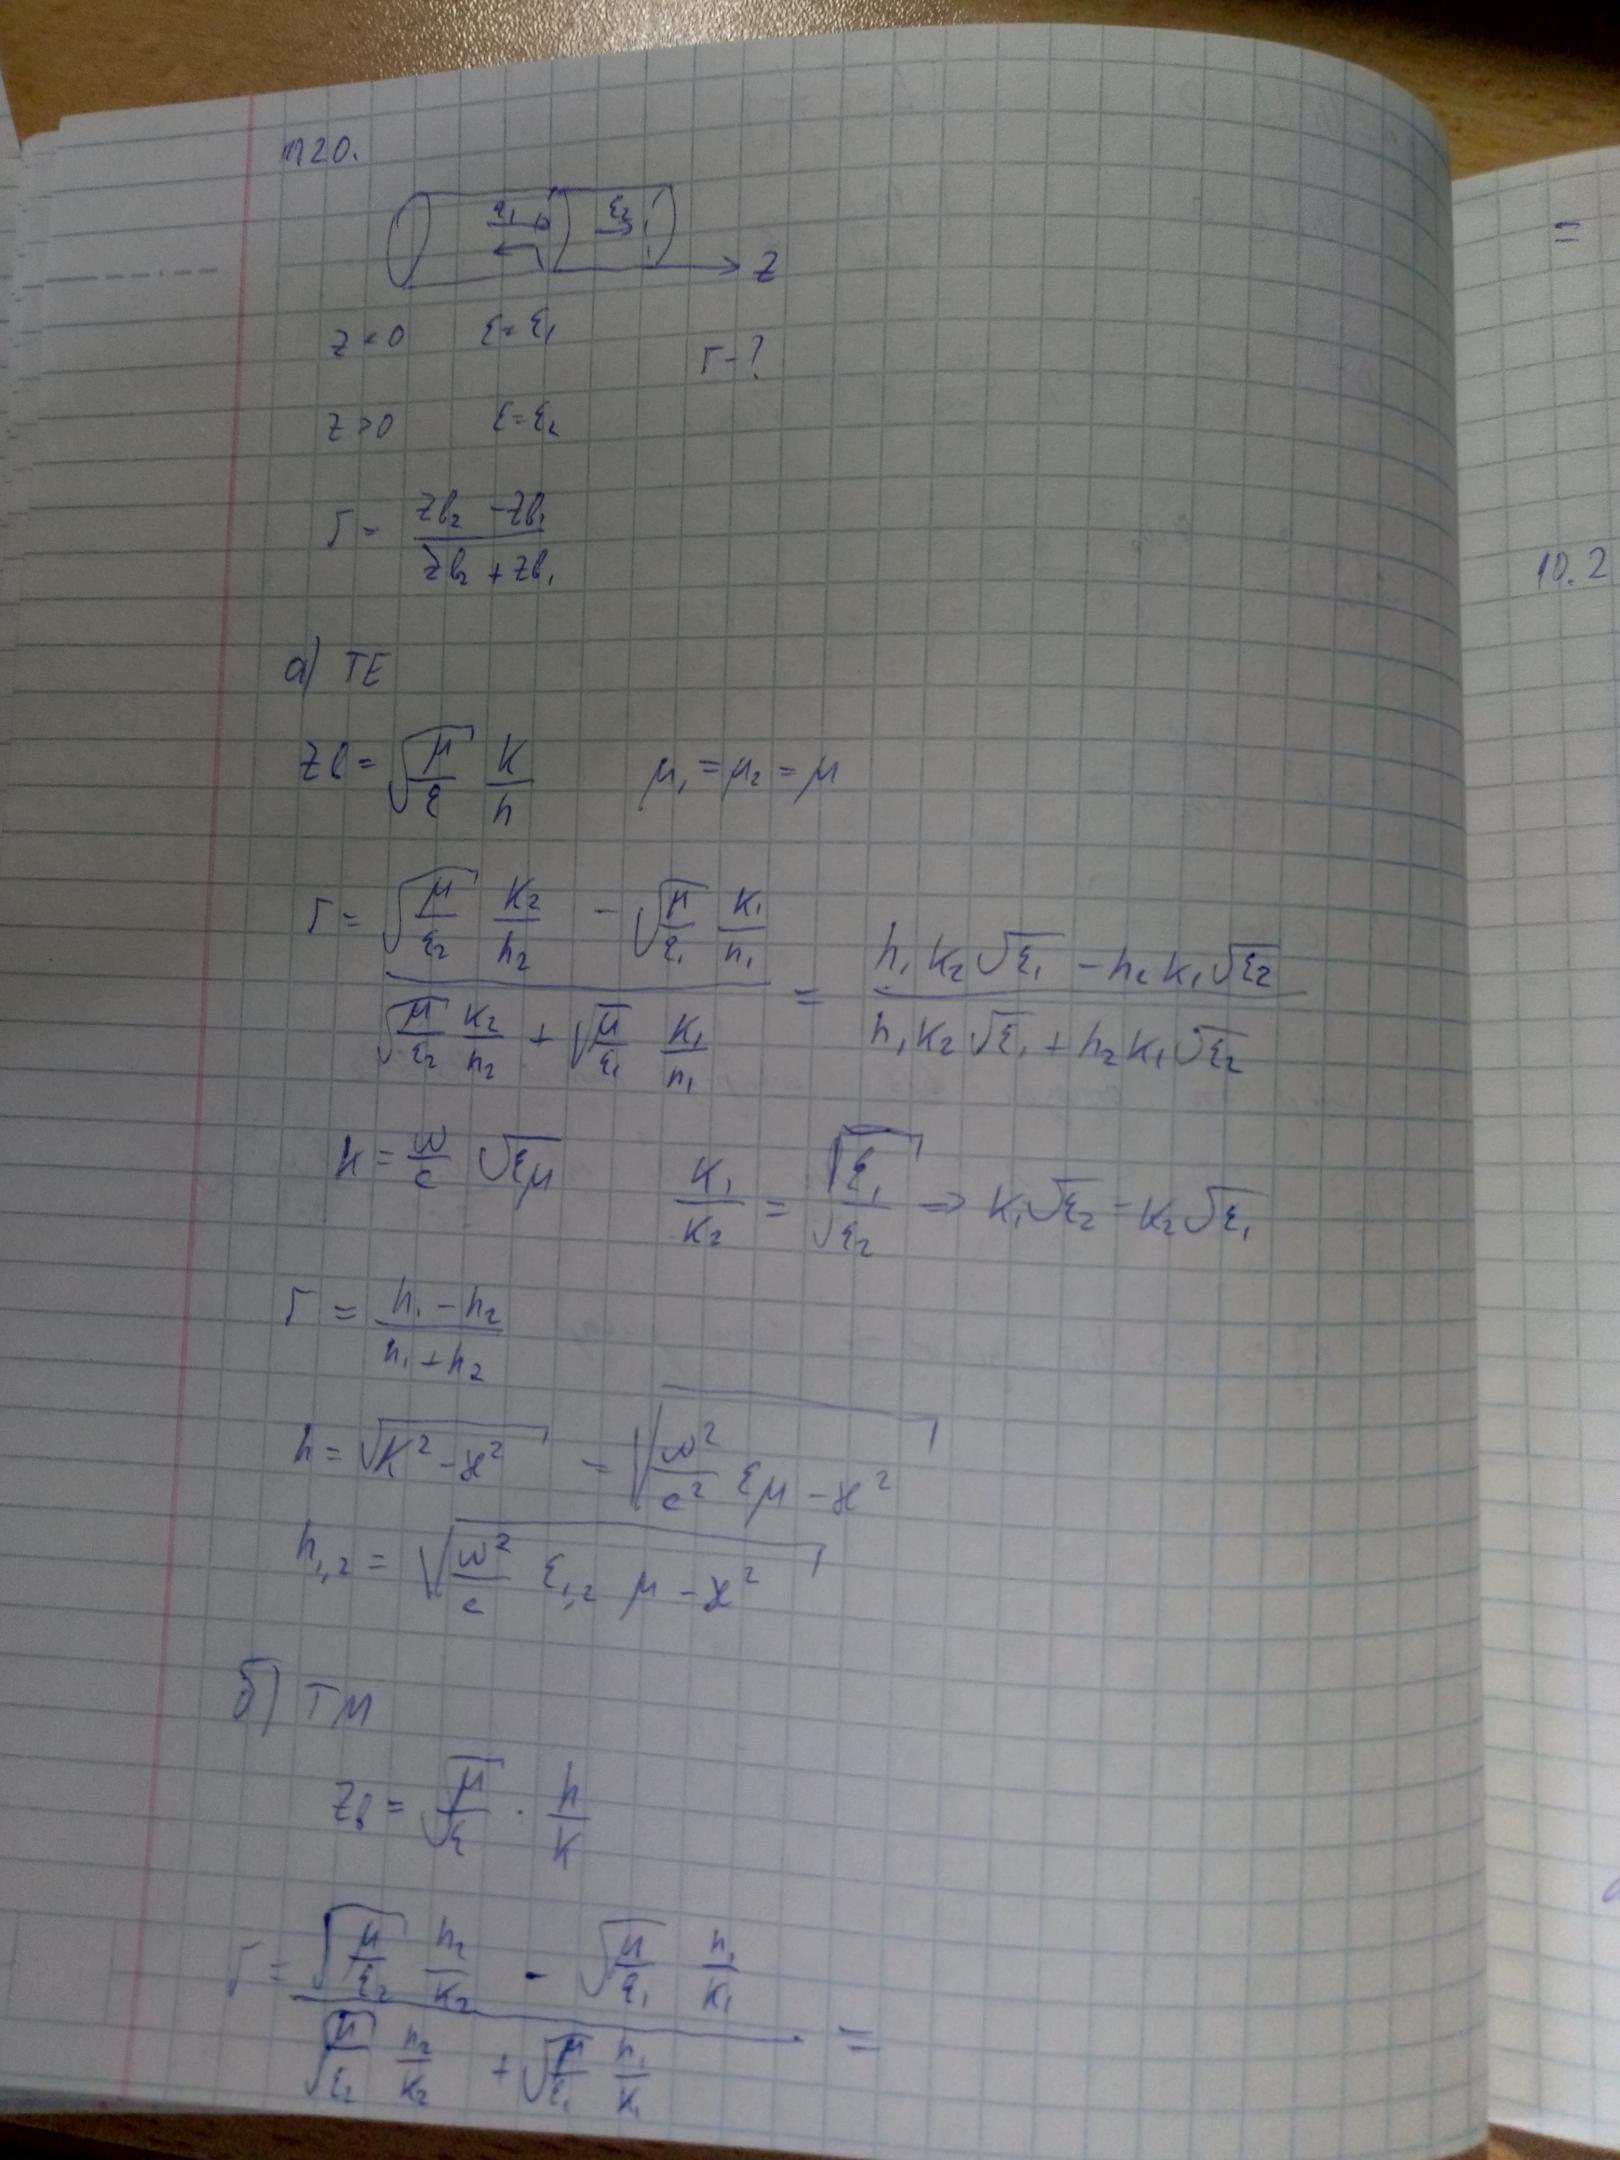 m20.
ε₁ ε₂
z
z < 0 ε = ε₁
Г - ?
z > 0 ε = ε₂
Г = (zв₂ - zв₁) / (zв₂ + zв₁)
а) TE
zв = √(μ/ε) k/h μ₁ = μ₂ = μ
Г = (√(μ/ε₂) k₂/h₂ - √(μ/ε₁) k₁/h₁) / (√(μ/ε₂) k₂/h₂ + √(μ/ε₁) k₁/h₁) = (h₁k₂√ε₁ - h₂k₁√ε₂) / (h₁k₂√ε₁ + h₂k₁√ε₂)
k = ω/c √εμ k₁/k₂ = √ε₁/√ε₂ => k₁√ε₂ = k₂√ε₁
Г = (h₁ - h₂) / (h₁ + h₂)
h = √(k² - ϰ²) = √(ω²/c² εμ - ϰ²)
h₁,₂ = √(ω²/c ε₁,₂ μ - ϰ²)
б) TM
zв = √(μ/ε) · h/k
Г = (√(μ/ε₂) h₂/k₂ - √(μ/ε₁) h₁/k₁) / (√(μ/ε₂) h₂/k₂ + √(μ/ε₁) h₁/k₁) =
=
10.2